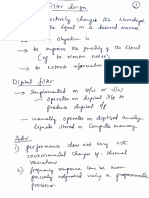 Filter design
①
selectively changes the waveshape
of the signal in a desired manner.
→ Objective is
→ to improve the quality of the signal
(eg to remove noise)
→ to extract information
Digital filter
→ Implemented in H/w or S/w
→ Operates on digital I/P
to produce digital O/P
→ usually operates on digitized analog
signals stored in computer memory.
Adv
1) performance does not vary with
environmental changes eg thermal
variations
2) frequency response can be more
precisely adjusted using a programmable
processor